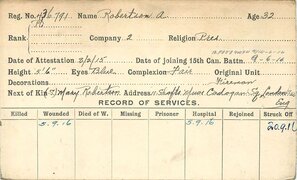 Reg. No. 436791 Name Robertson A. Age 32
Rank Company 2 Religion Pres.
Date of Attestation 3/2/15 Date of Joining 15th Can. Battn. 9-6-16
Height 5'6" Eyes Blue Complexion Fair Original Unit
Decorations Fireman
Next of Kin Mary Robertson Address Cadogan Sq London Eng
RECORD OF SERVICES.
Killed Wounded Died of W. Missing Prisoner Hospital Rejoined Struck Off
5.9.16 5.9.16 20.9.16